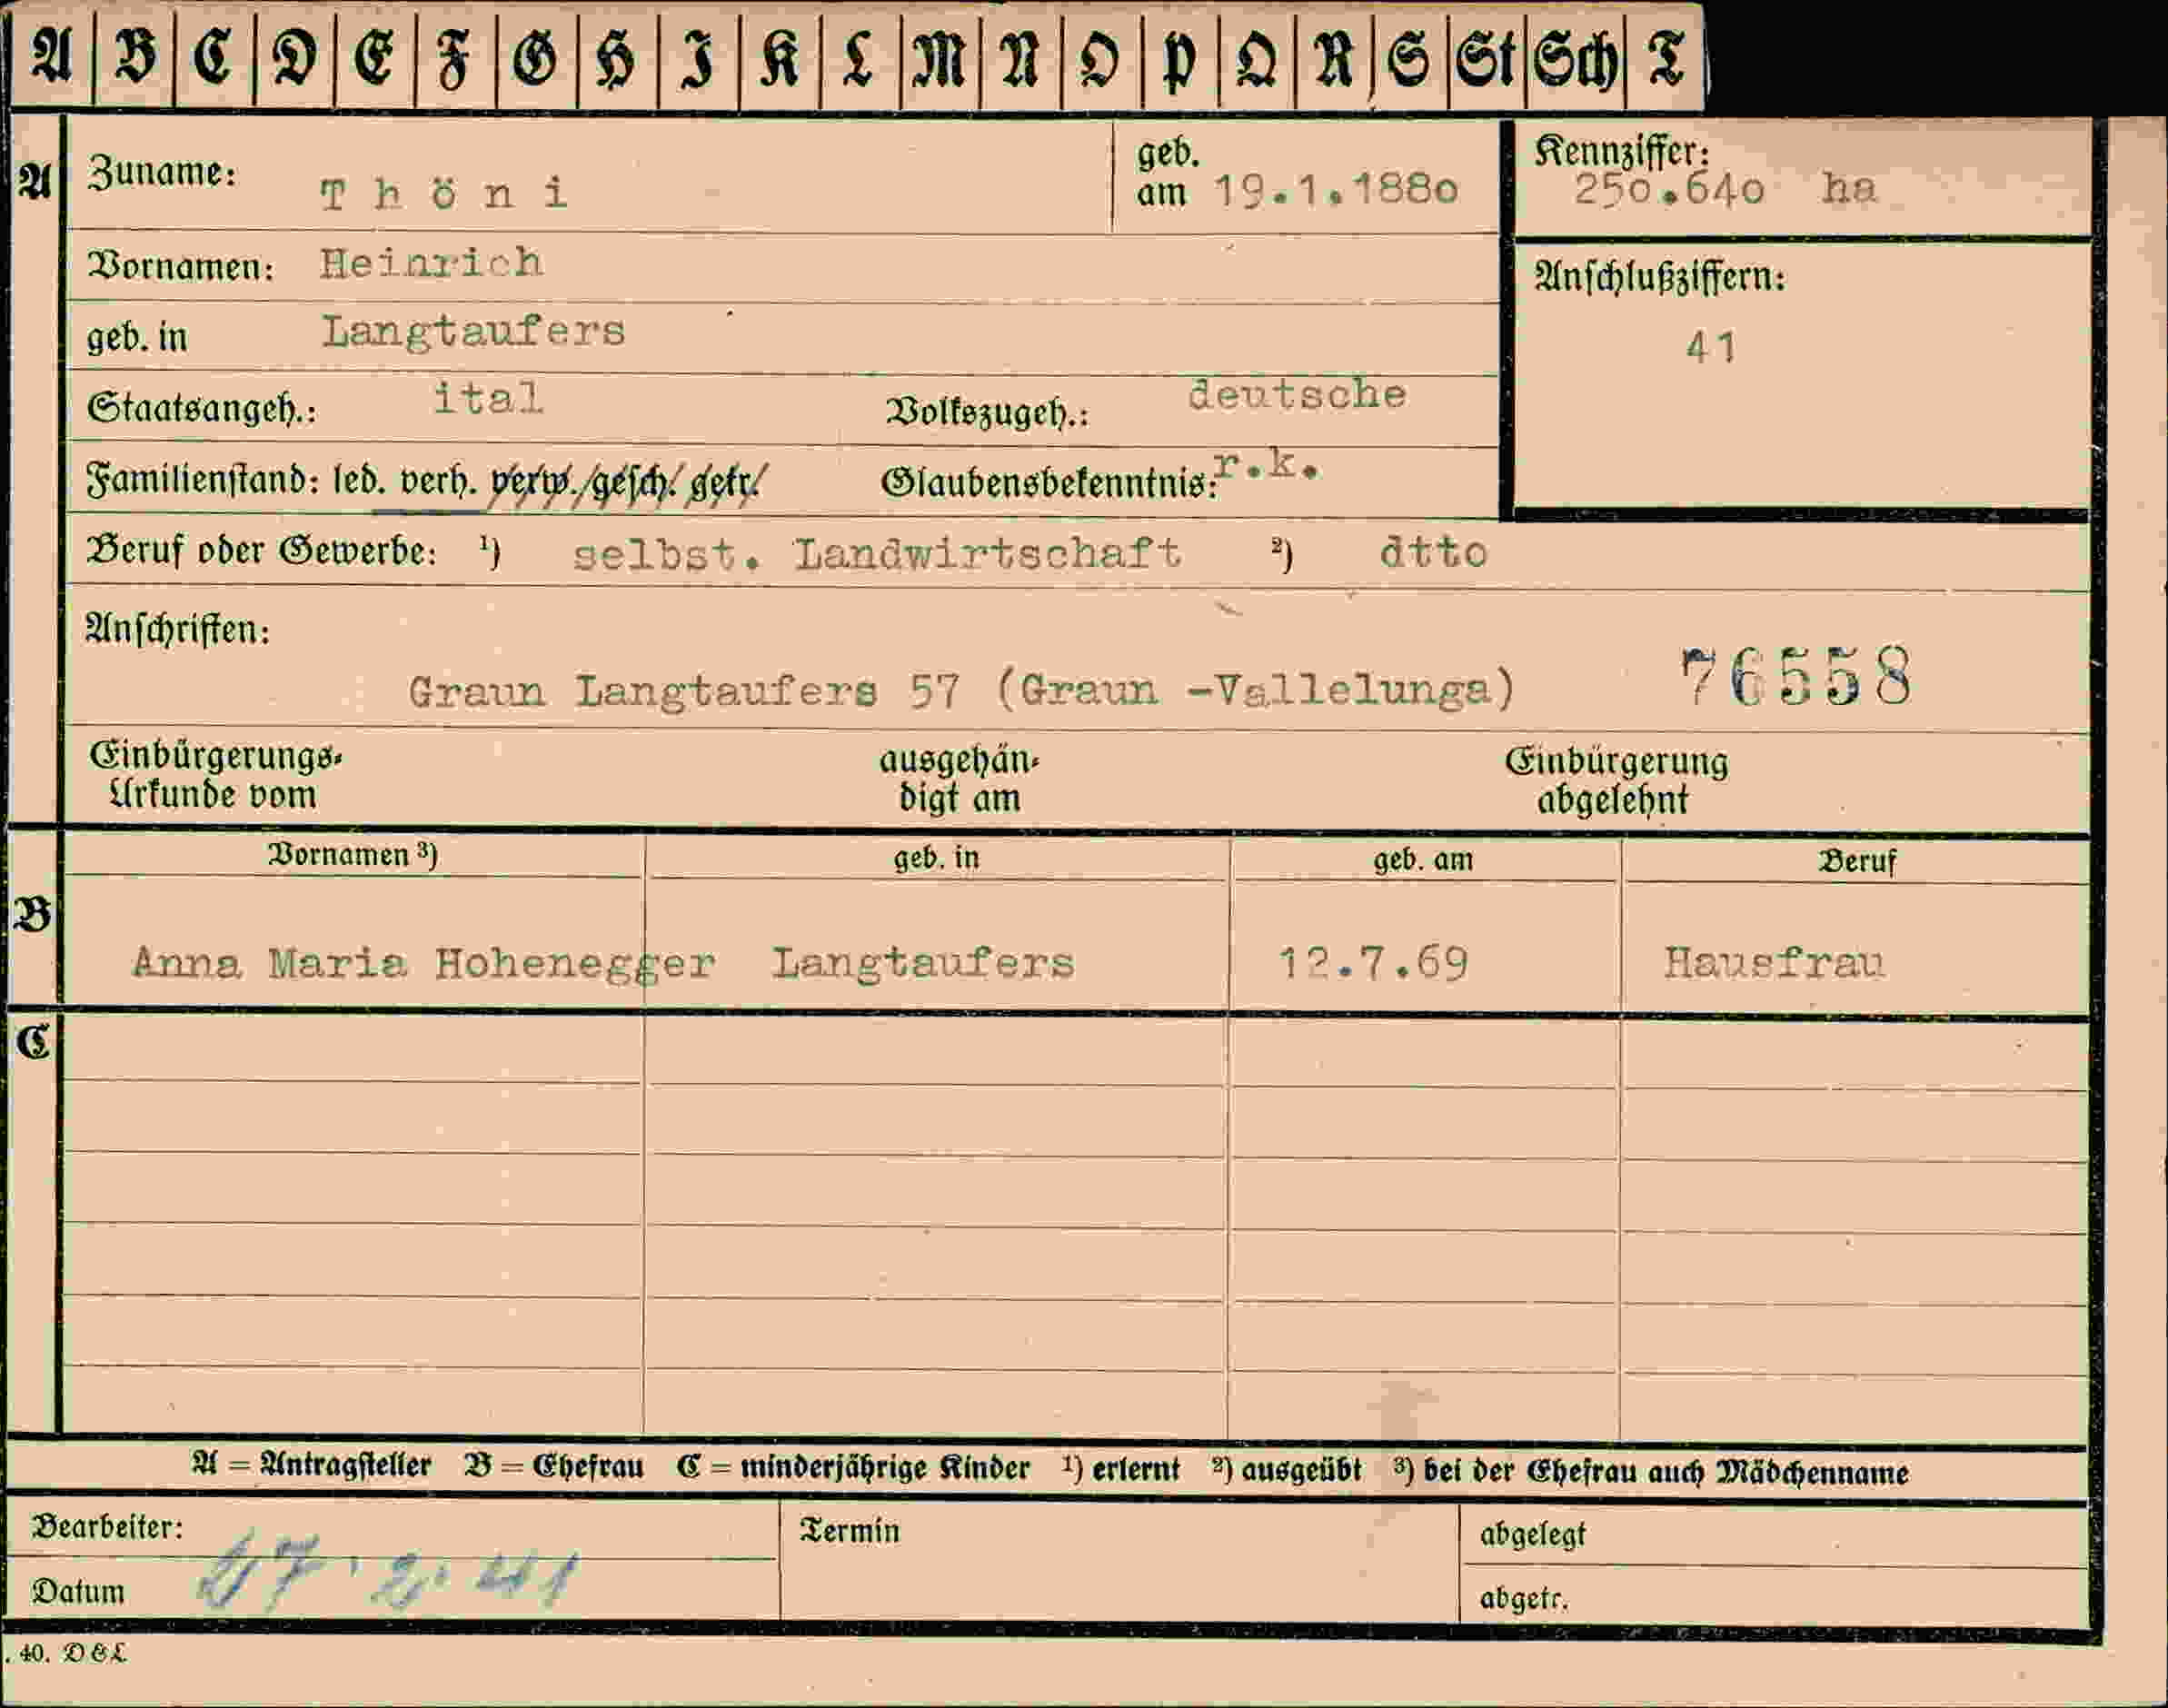 A B C D E F G H I K L M N O P Q R S St Sch T
A
Zuname: Thöni
geb. am 19.1.1880
Kennziffer: 250.640 ha
Vornamen: Heinrich
Anschlußziffern:
geb. in Langtaufers
41
Staatsangeh.: ital Volkszugeh.: deutsche
Familienstand: led. verh. verw. gesch. getr. Glaubensbekenntnis: r.k.
Beruf oder Gewerbe: ¹) selbst. Landwirtschaft ²) dtto
Anschriften:
Graun Langtaufers 57 (Graun -Vallelunga) 76558
Einbürgerungs- ausgehän- Einbürgerung
Urkunde vom digt am abgelehnt
Vornamen ³) geb. in geb. am Beruf
B
Anna Maria Hohenegger Langtaufers 12.7.69 Hausfrau
C
A = Antragsteller B = Ehefrau C = minderjährige Kinder ¹) erlernt ²) ausgeübt ³) bei der Ehefrau auch Mädchenname
Bearbeiter: Termin abgelegt
Datum 27.2.41 abgetr.
. 40. D & L